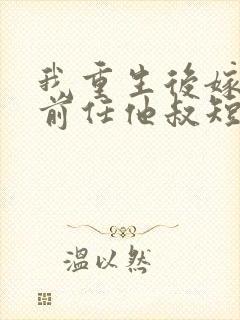 我重生后嫁
前任他叔短
温以然